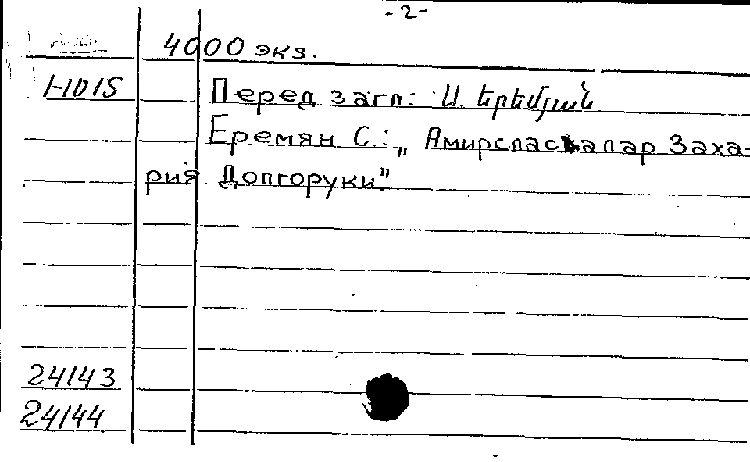 -2-
4000 экз.
1-1015
Перед загл: Ս. Երեմյան
Еремян С.: „ Амирспасалар Заха-
рия Долгоруки"
24143
24144